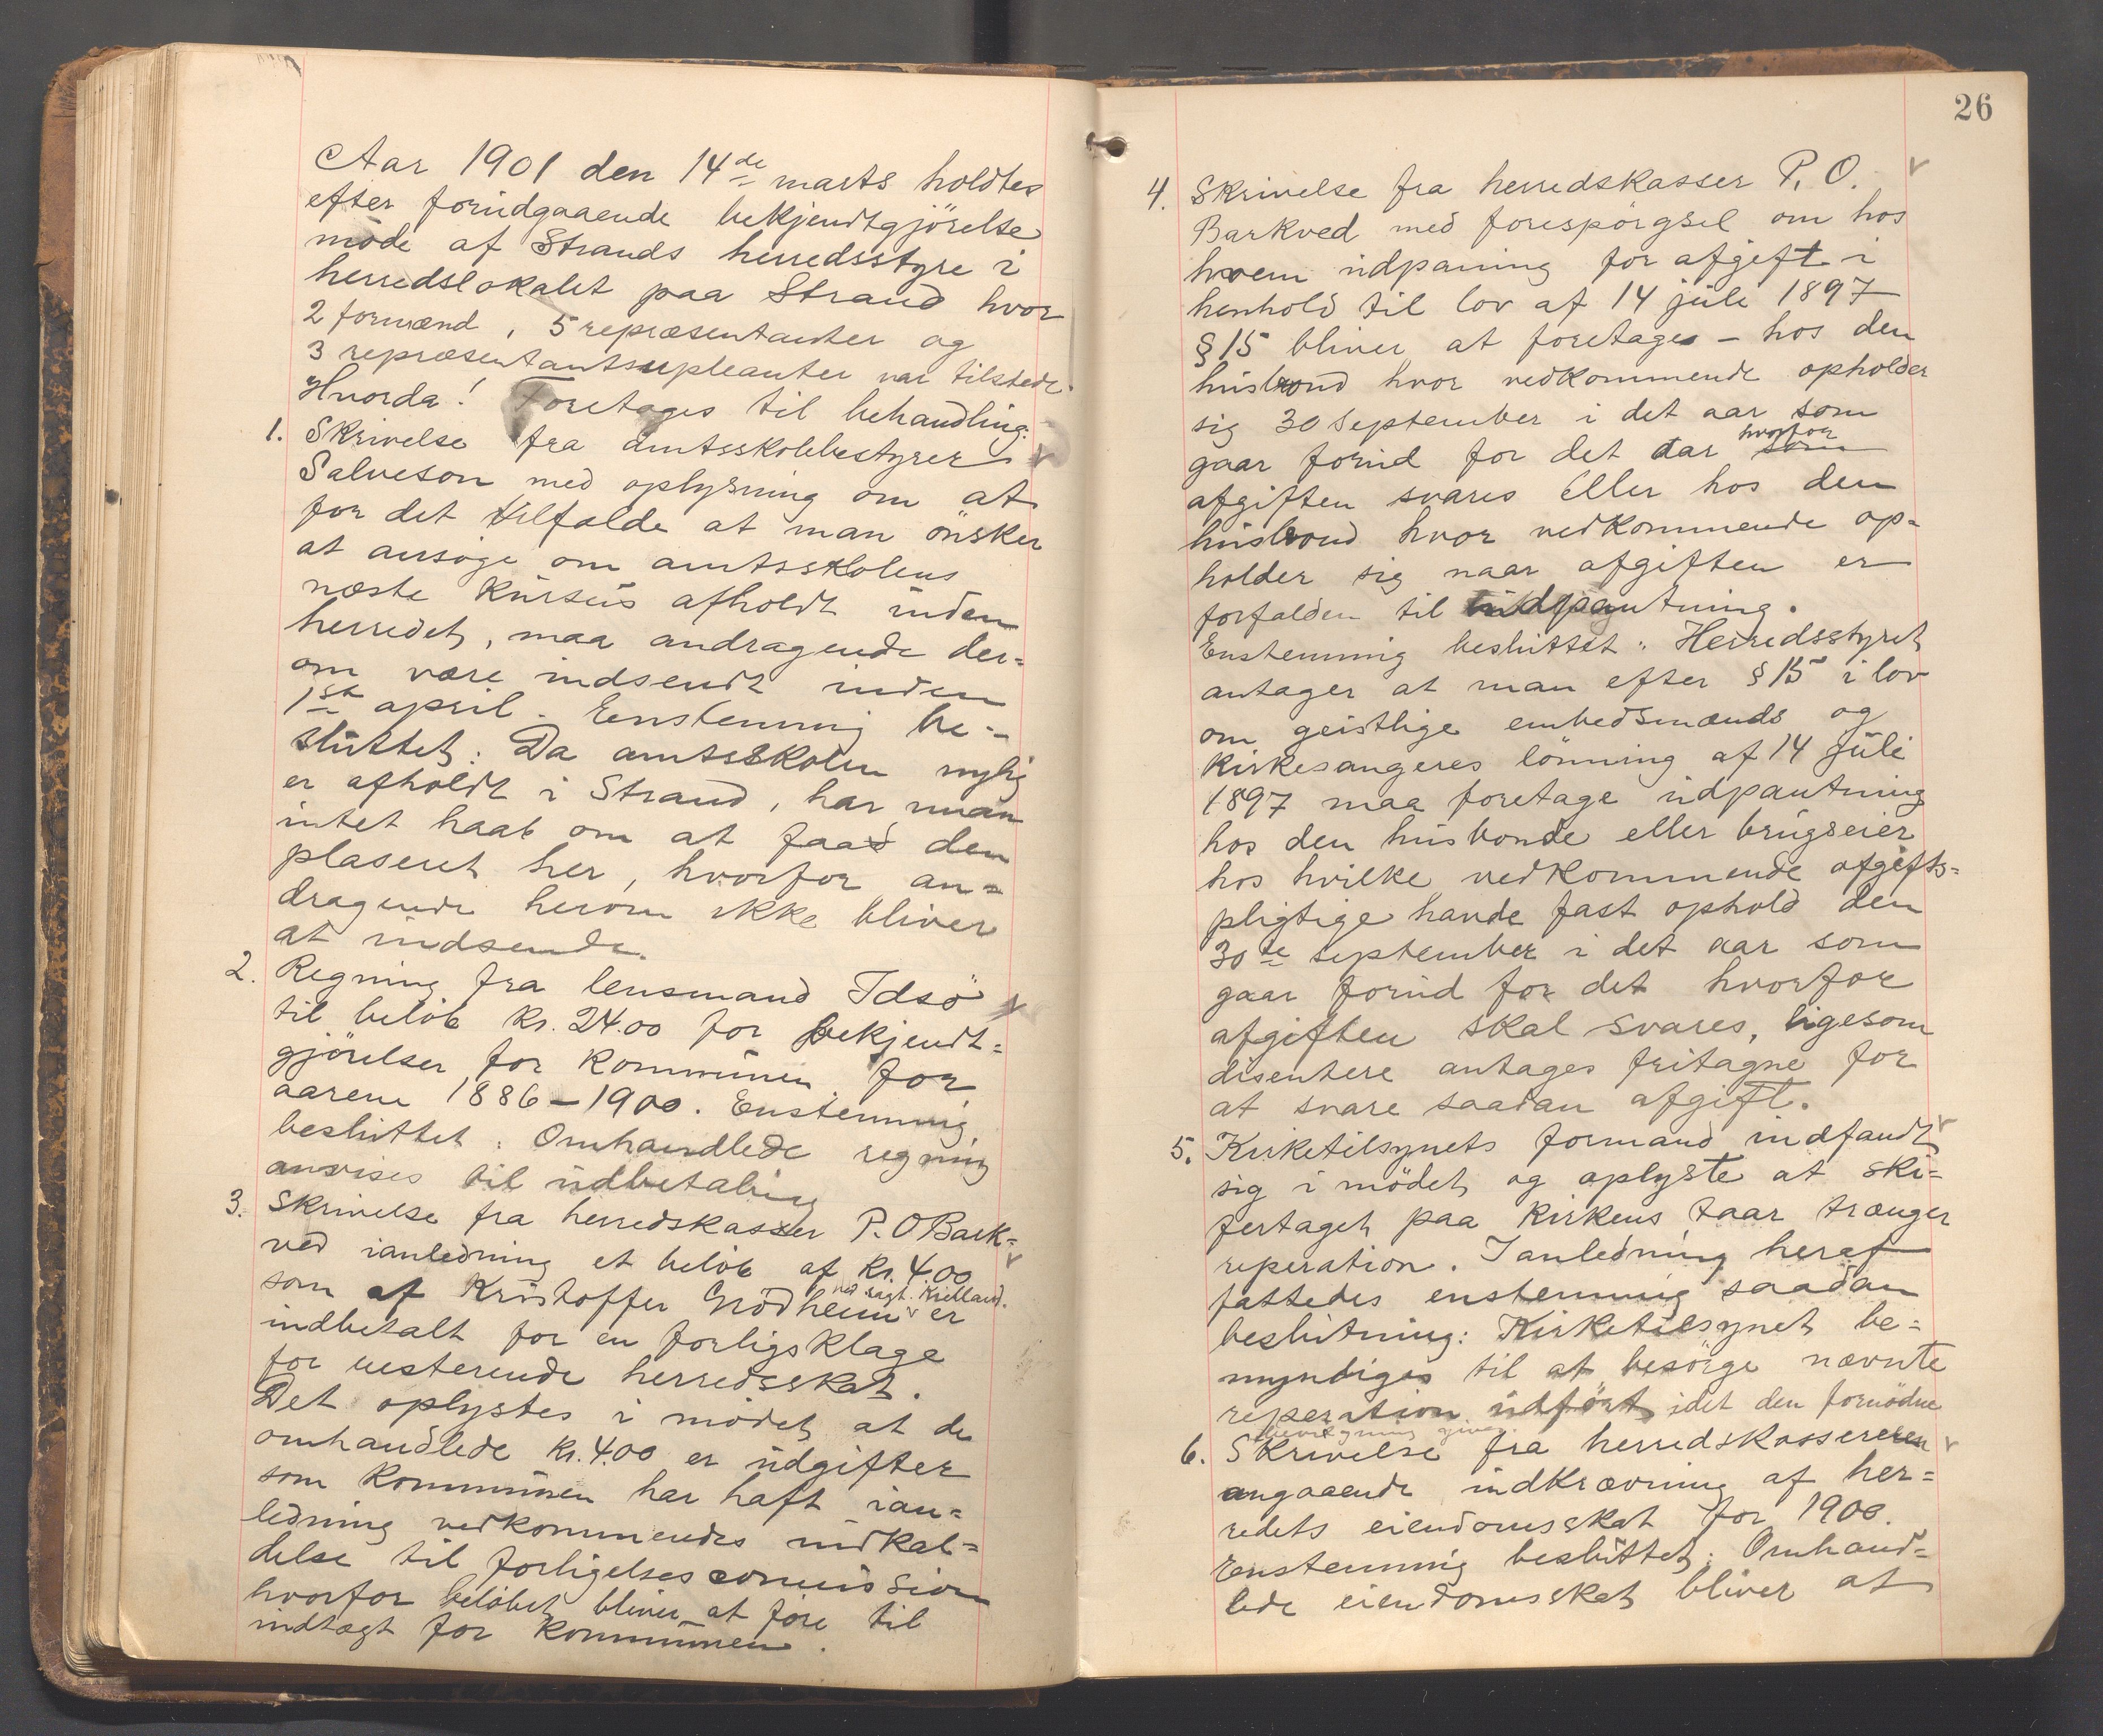 Aar 1901 den 14de marts holdtes
efter forudgaaende bekjendtgjörelse
möde af Strands herredsstyre i
herredslokalet paa Strand hvor
2 formænd, 5 repræsentanter og
3 repræsentantsupleanter var tilstede.
Hvorda! Foretoges til behandling.
1. Skrivelse fra amtsskolebestyrer
Salveson med oplysning om at
for det tilfælde at man önsker
at ansöge om amtsskolens
næste kursus afholdt inden
herredet, maa andragende der=
om være indsendt inden
1ste april. Eenstemmig be=
sluttet: Da amtsskolen nylig
er afholdt i Strand, har man
intet haab om at faa den
plaseret her, hvorfor an=
dragende herom ikke bliver
at indsende.
2. Regning fra lensmand Idsö
til belöb kr. 24.00 for bekjendt=
gjörelser for kommunen for
aarene 1886-1900. Enstemmig
besluttet: Omhandlede regning
anvises til udbetaling
3. Skrivelse fra herredskasser P. O Bark=
ved ianledning et belöb af kr. 4.00
som af Kristoffer Grödheim ved sagf. Kielland. er
indbetalt for en forligsklage
for resterende herredsskat.
Det oplystes i mödet at de
omhandlede kr. 4.00 er udgifter
som kommunen har haft ian=
ledning vedkommendes indkal=
delse til forligelsescommission
hvorfor belöbet bliver at före til
indtægt for kommunen.
26
4. Skrivelse fra herredskasser P. O.
Barkved med forespörgsel om hos
hvem udpanting for afgift i
henhold til lov af 14 juli 1897
§ 15 bliver at foretages - hos den
husbond hvor vedkommende opholder
sig 30 September i det aar som
gaar forud for det aar som hvorfor
afgiften svares eller hos den
husbond hvor vedkommende op=
holder sig naar afgiften er
forfalden til udpantning.
Enstemmig besluttet: Herredsstyret
antager at man efter § 15 i lov
om geistlige embedsmænds og
kirkesangeres lönning af 14 Juli
1897 maa foretage udpantning
hos den husbonde eller brugseier
hos hvilke vedkommende afgifts=
pligtige havde fast ophold den
30te september i det aar som
gaar forud for det hvorfor
afgiften skal svares, ligesom
disentere antages fritagne for
at svare saadan afgift.
5. Kirketilsynets formand indfandt
sig i mödet og oplyste at ski=
fertaget paa kirkens taar trænger
reperation. I anledning heraf
fattedes enstemmig saadan
beslutning: Kirketilsynet be=
myndiges til at besörge nævnte
reperation udfört, idet den fornödne
bevilgning gives.
6. Skrivelse fra herredskassereren
angaaende indkrævning af her=
redets eiendomsskat for 1900.
Enstemmig besluttet: Omhand=
lede eiendomsskat bliver at